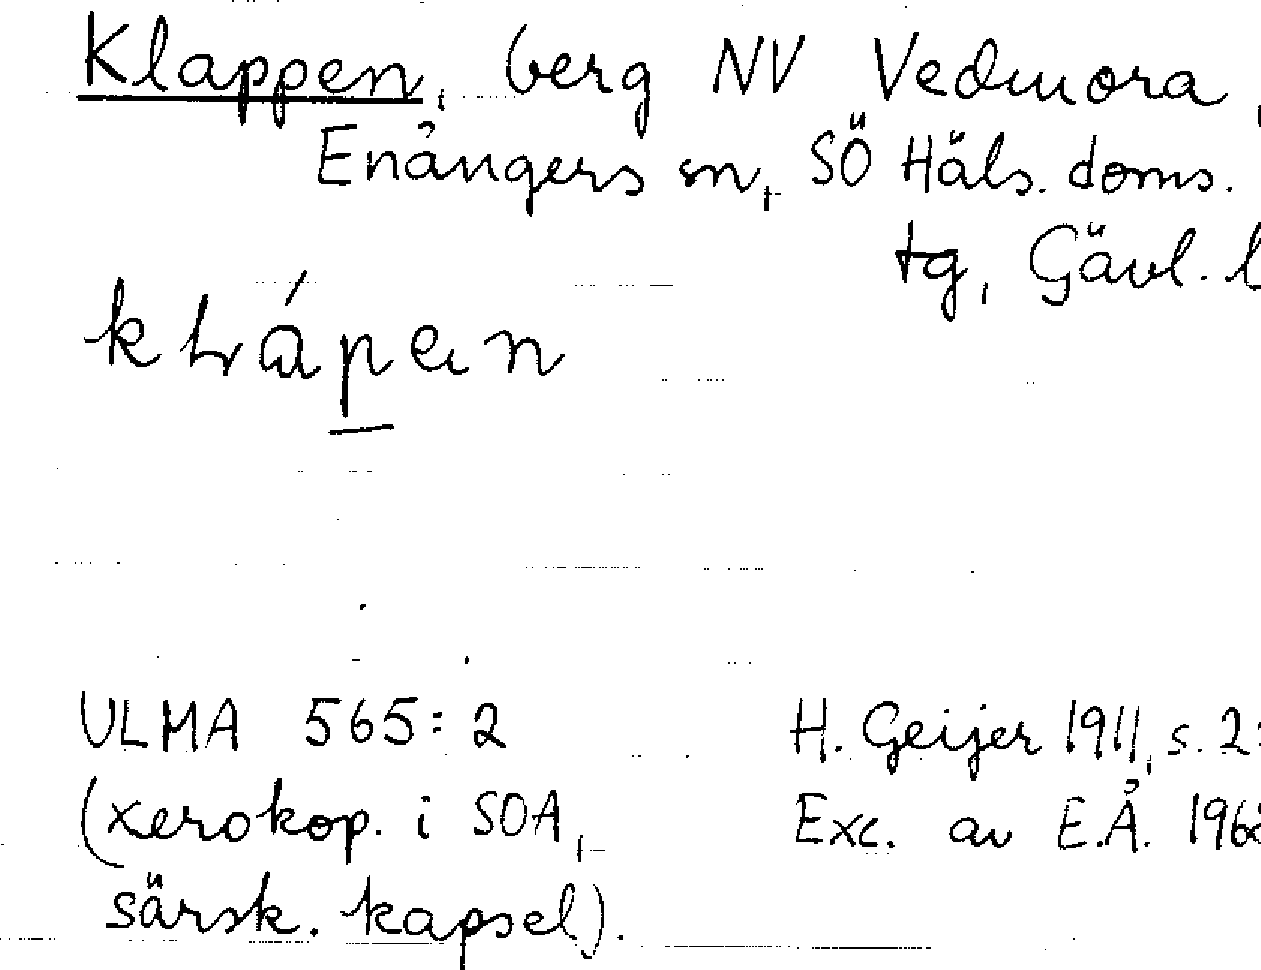 Klappen, berg NV Vedmora,
Enångers sn, SÖ Häls. doms.
tg, Gävl. l
klápen
ULMA 565:2 H. Geijer 1911, s. 2
(xerokop. i SOA, Exc. av E.Å. 196
särsk. kapsel).